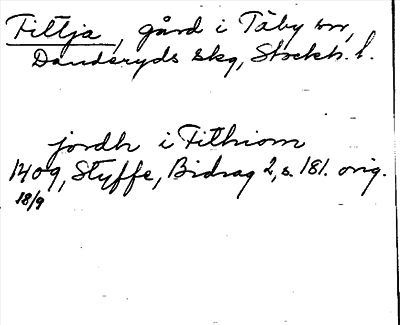 Fittja, gård i Täby sn,
Danderyds skg, Stockh. l.
jordh i Fithiom
1409, Styffe, Bidrag 2, s. 181. orig.
18/9